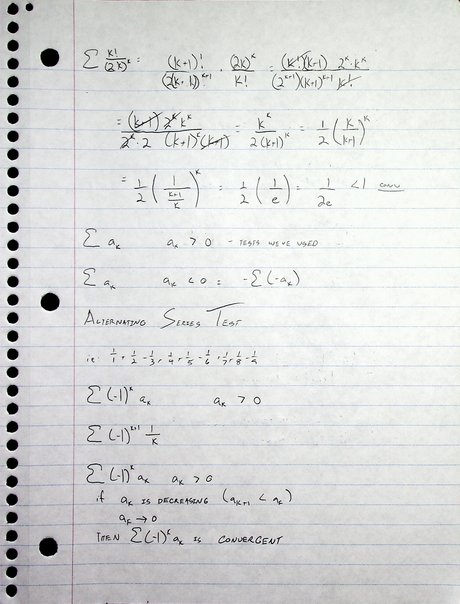 ∑ k!/(2k)^k = (k+1)!/(2(k+1))^(k+1) · (2k)^k/k! = (k!)(k+1) 2^k·k^k/(2^(k+1))(k+1)^(k+1) k!
= (k+1) 2^k k^k/2^k·2 (k+1)^k(k+1) = k^k/2(k+1)^k = 1/2 (k/k+1)^k
= 1/2 (1/(k+1/k))^k = 1/2 (1/e) = 1/2e < 1 conv
∑ a_k a_k > 0 - TESTS WE'VE USED
∑ a_k a_k < 0 = -∑(-a_k)
ALTERNATING SERIES TEST
ie: 1/1 + 1/2 - 1/3 + 1/4 + 1/5 - 1/6 + 1/7 + 1/8 - 1/9
∑(-1)^k a_k a_k > 0
∑(-1)^(k+1) 1/k
∑(-1)^k a_k a_k > 0
if a_k IS DECREASING (a_k+1 < a_k)
a_k → 0
THEN ∑(-1)^k a_k IS CONVERGENT